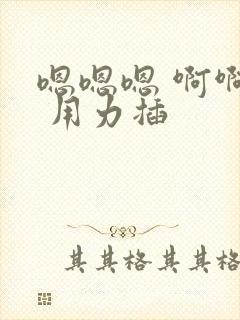 嗯嗯嗯 啊啊
用力插
其其格 其其格